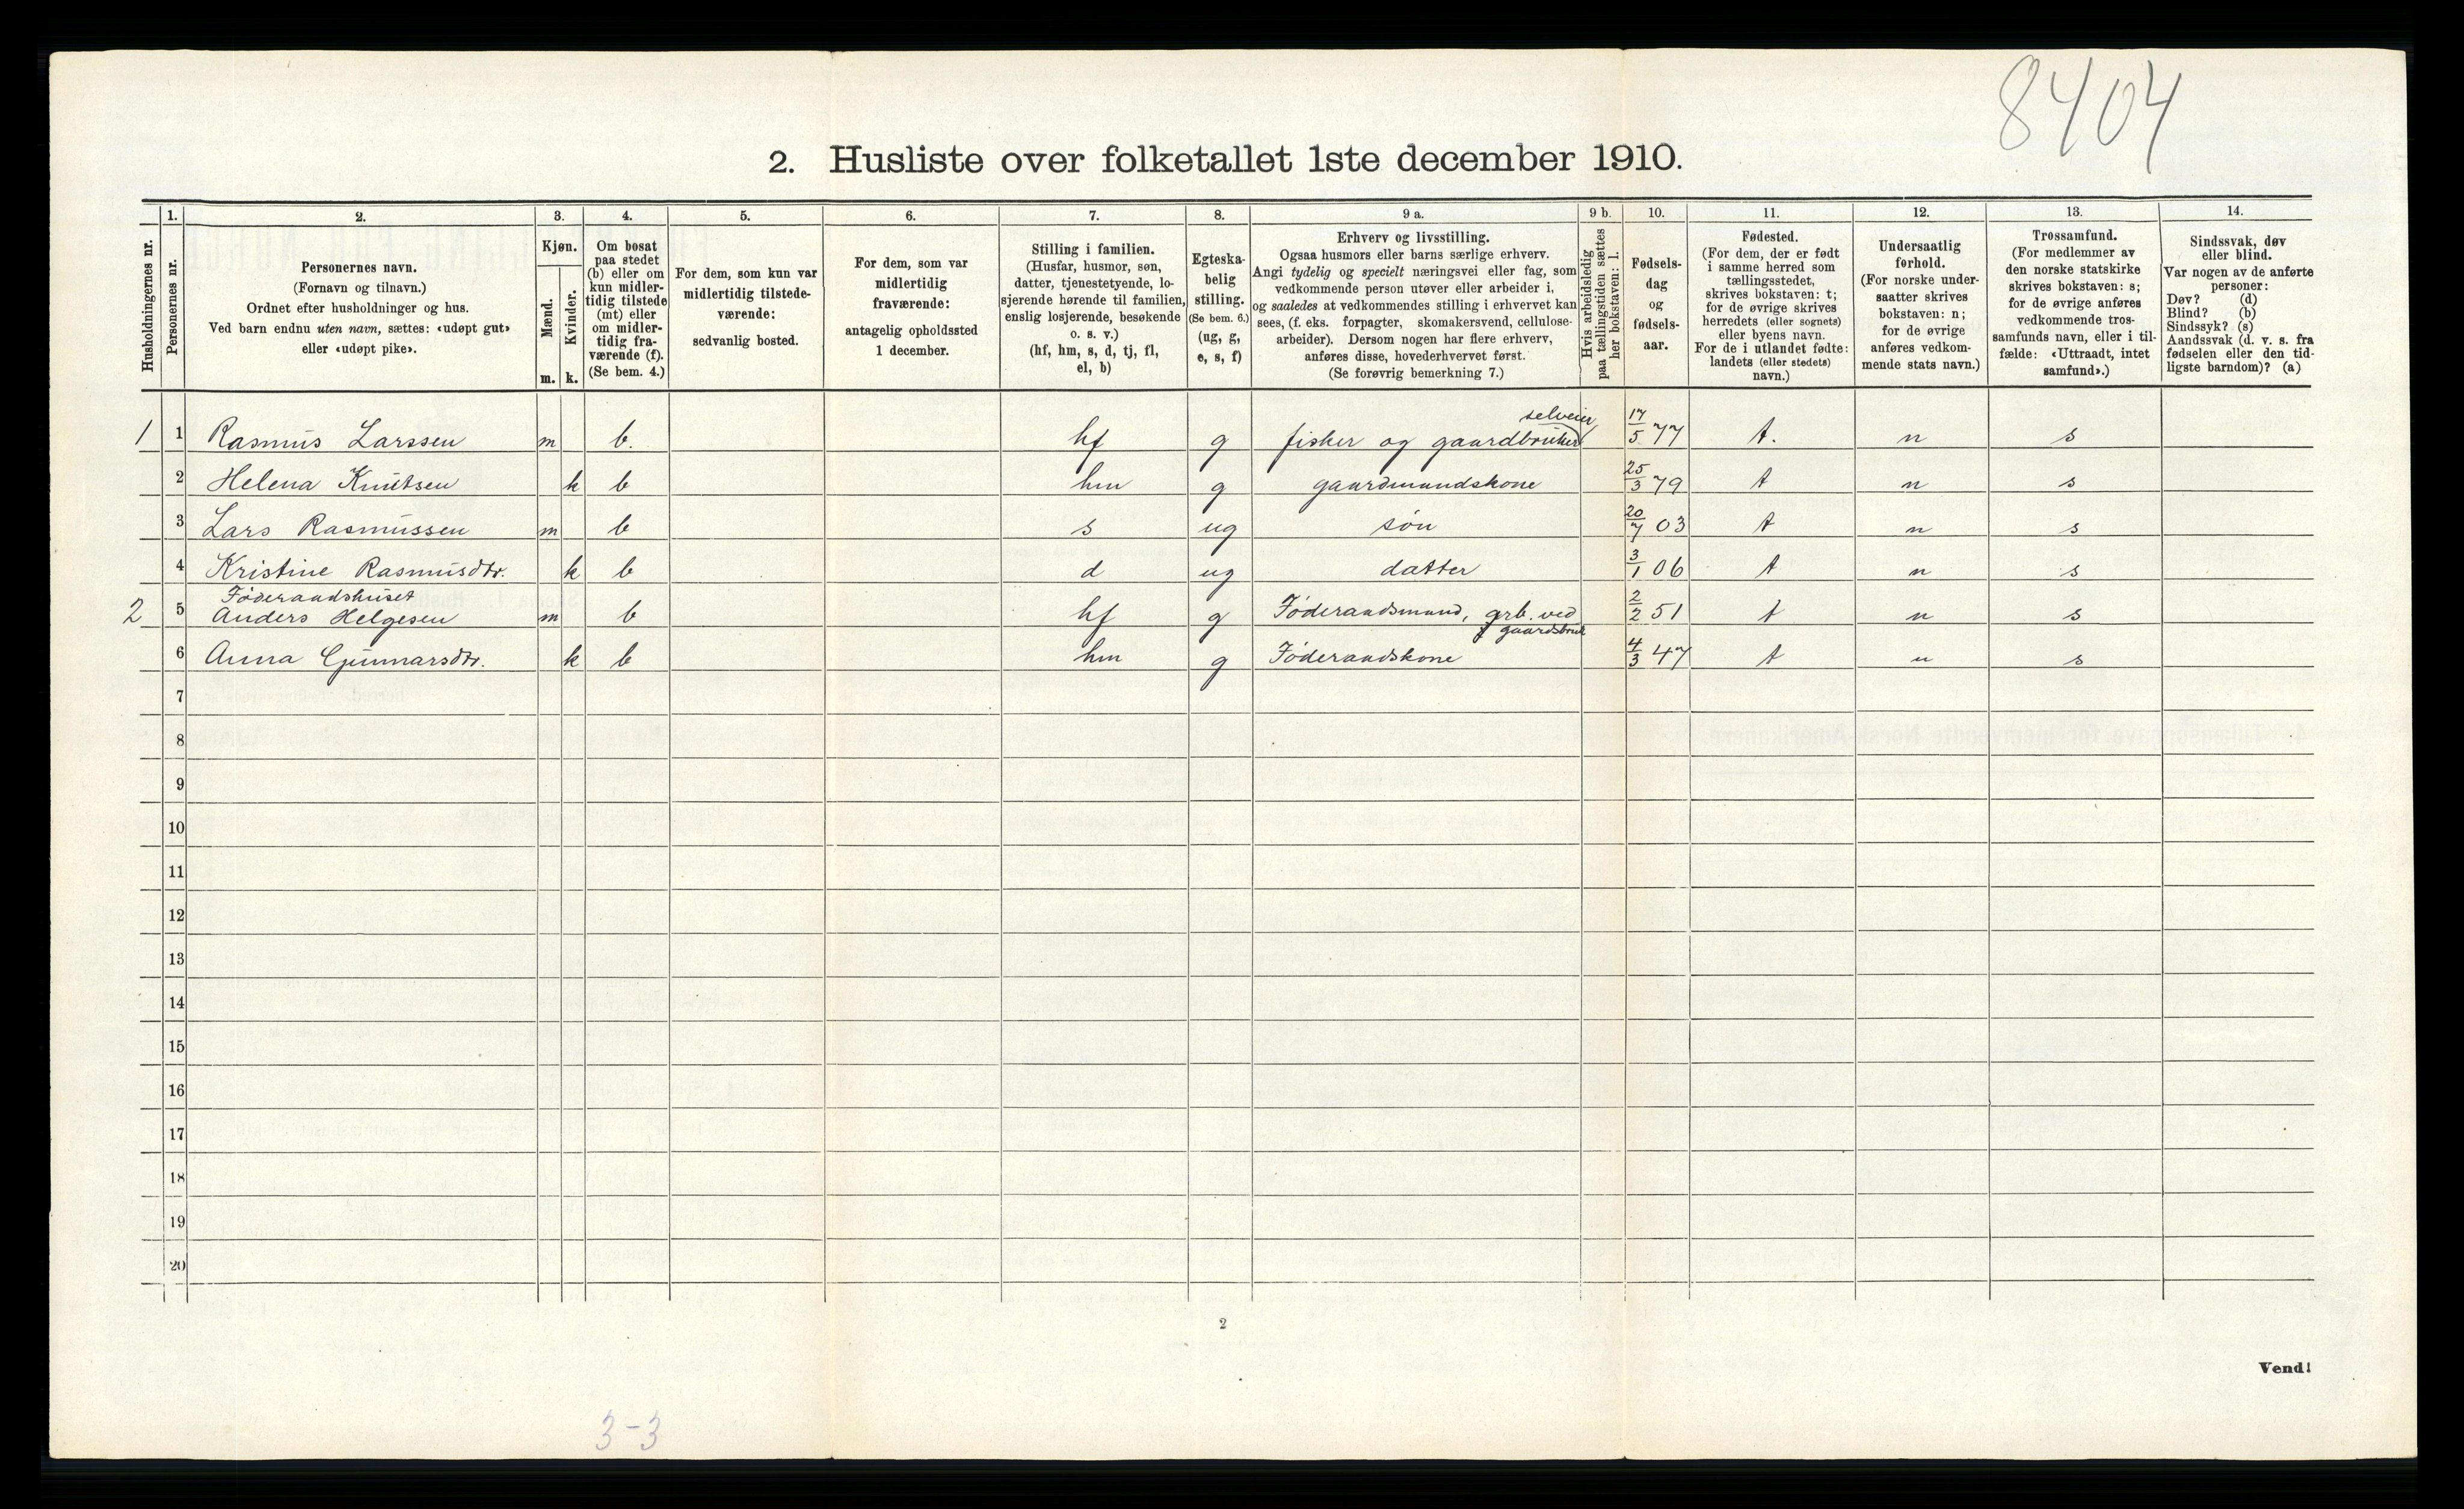 8404
2. Husliste over folketallet 1ste december 1910.
Husholdningernes nr.
1.
Personernes nr.
2.
Personernes navn.
(Fornavn og tilnavn.)
Ordnet efter husholdninger og hus.
Ved barn endnu uten navn, sættes: «udøpt gut»
eller «udøpt pike».
3.
Kjøn.
Mænd.
Kvinder.
m. k.
4.
Om bosat
paa stedet
(b) eller om
kun midler-
tidig tilstede
(mt) eller
om midler-
tidig fra-
værende (f).
(Se bem. 4.)
5.
For dem, som kun var
midlertidig tilstede-
værende:
sedvanlig bosted.
6.
For dem, som var
midlertidig
fraværende:
antagelig opholdssted
1 december.
7.
Stilling i familien.
(Husfar, husmor, søn,
datter, tjenestetyende, lo-
sjerende hørende til familien,
enslig losjerende, besøkende
o. s. v.)
(hf, hm, s, d, tj, fl,
el, b)
8.
Egteska-
belig
stilling.
(Se bem. 6.)
(ug, g,
e, s, f)
9 a.
Erhverv og livsstilling.
Ogsaa husmors eller barns særlige erhverv.
Angi tydelig og specielt næringsvei eller fag, som
vedkommende person utøver eller arbeider i,
og saaledes at vedkommendes stilling i erhvervet kan
sees, (f. eks. forpagter, skomakersvend, cellulose-
arbeider). Dersom nogen har flere erhverv,
anføres disse, hovederhvervet først.
(Se forøvrig bemerkning 7.)
9 b.
Hvis arbeidsledig
paa tællingstiden sættes
her bokstaven: l.
10.
Fødsels-
dag
og
fødsels-
aar.
11.
Fødested.
(For dem, der er født
i samme herred som
tællingsstedet,
skrives bokstaven: t;
for de øvrige skrives
herredets (eller sognets)
eller byens navn.
For de i utlandet fødte:
landets (eller stedets)
navn.)
12.
Undersaatlig
forhold.
(For norske under-
saatter skrives
bokstaven: n;
for de øvrige
anføres vedkom-
mende stats navn.)
13.
Trossamfund.
(For medlemmer av
den norske statskirke
skrives bokstaven: s;
for de øvrige anføres
vedkommende tros-
samfunds navn, eller i til-
fælde: «Uttraadt, intet
samfund».)
14.
Sindssvak, døv
eller blind.
Var nogen av de anførte
personer:
Døv? (d)
Blind? (b)
Sindssyk? (s)
Aandssvak (d. v. s. fra
fødselen eller den tid-
ligste barndom)? (a)
selveier
1 1 Rasmus Larssen m b. hf g fisker og gaardbruker 17/5 77 t. n s
2 Helena Knutsen k b hm g gaardmandskone 25/3 79 t n s
3 Lars Rasmussen m b s ug søn 20/7 03 t n s
4 Kristine Rasmusdtr. k b d ug datter 3/1 06 t n s
Føderaadshuset
2 5 Anders Helgesen m b hf g Føderaadsmand, grb. ved 2/2 51 t n s
gaardsbruk
6 Anna Gunnarsdtr. k b hm g Føderaadskone 4/3 47 t n s
7
8
9
10
11
12
13
14
15
16
17
18
19
20
2
Vend!
3-3